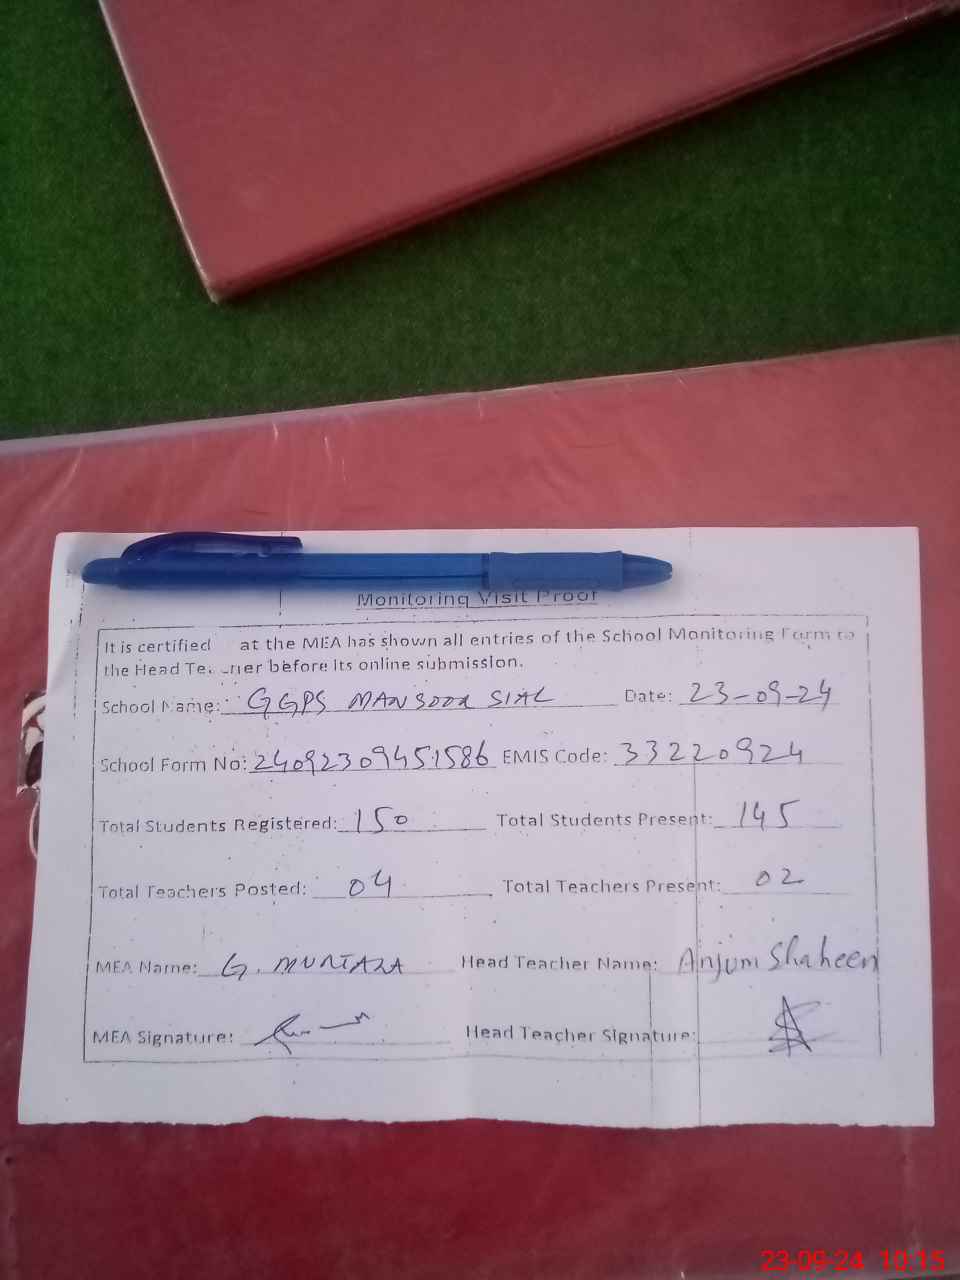 Monitoring Visit Proof
It is certified at the MEA has shown all entries of the School Monitoring Form to
the Head before its online submission.
School Name: GGPS MANSOOR SIAL Date: 23-09-24
School Form No: 24092309451586 EMIS Code: 33220924
Total Students Registered: 150 Total Students Present: 145
Total Teachers Posted: 04 Total Teachers Present: 02
MEA Name: G. MURTAZA Head Teacher Name: Anjum Shaheen
MEA Signature: Head Teacher Signature:
23-09-24 10:15